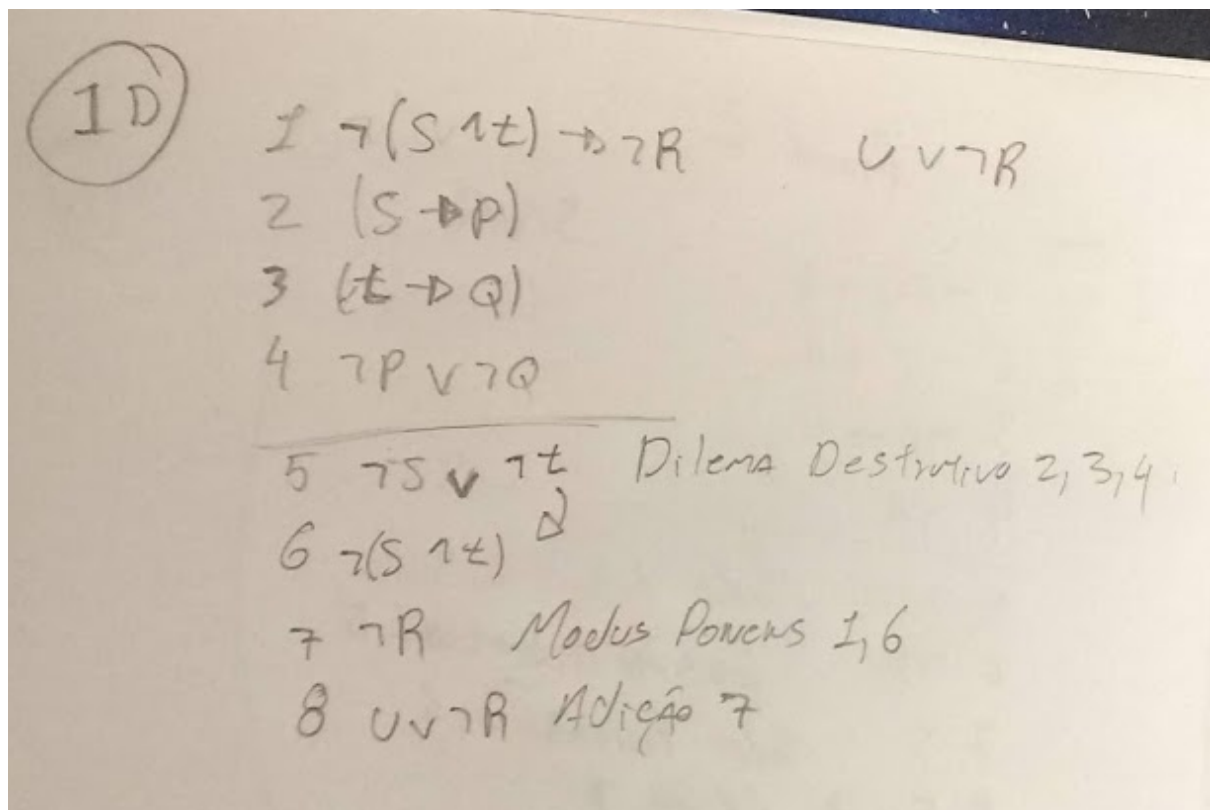 1D
1 ¬(S ∧ t) → ¬R U ∨ ¬R
2 (S → P)
3 (t → Q)
4 ¬P ∨ ¬Q
5 ¬S ∨ ¬t Dilema Destrutivo 2, 3, 4.
6 ¬(S ∧ t)
7 ¬R Modus Ponens 1, 6
8 U ∨ ¬R Adição 7